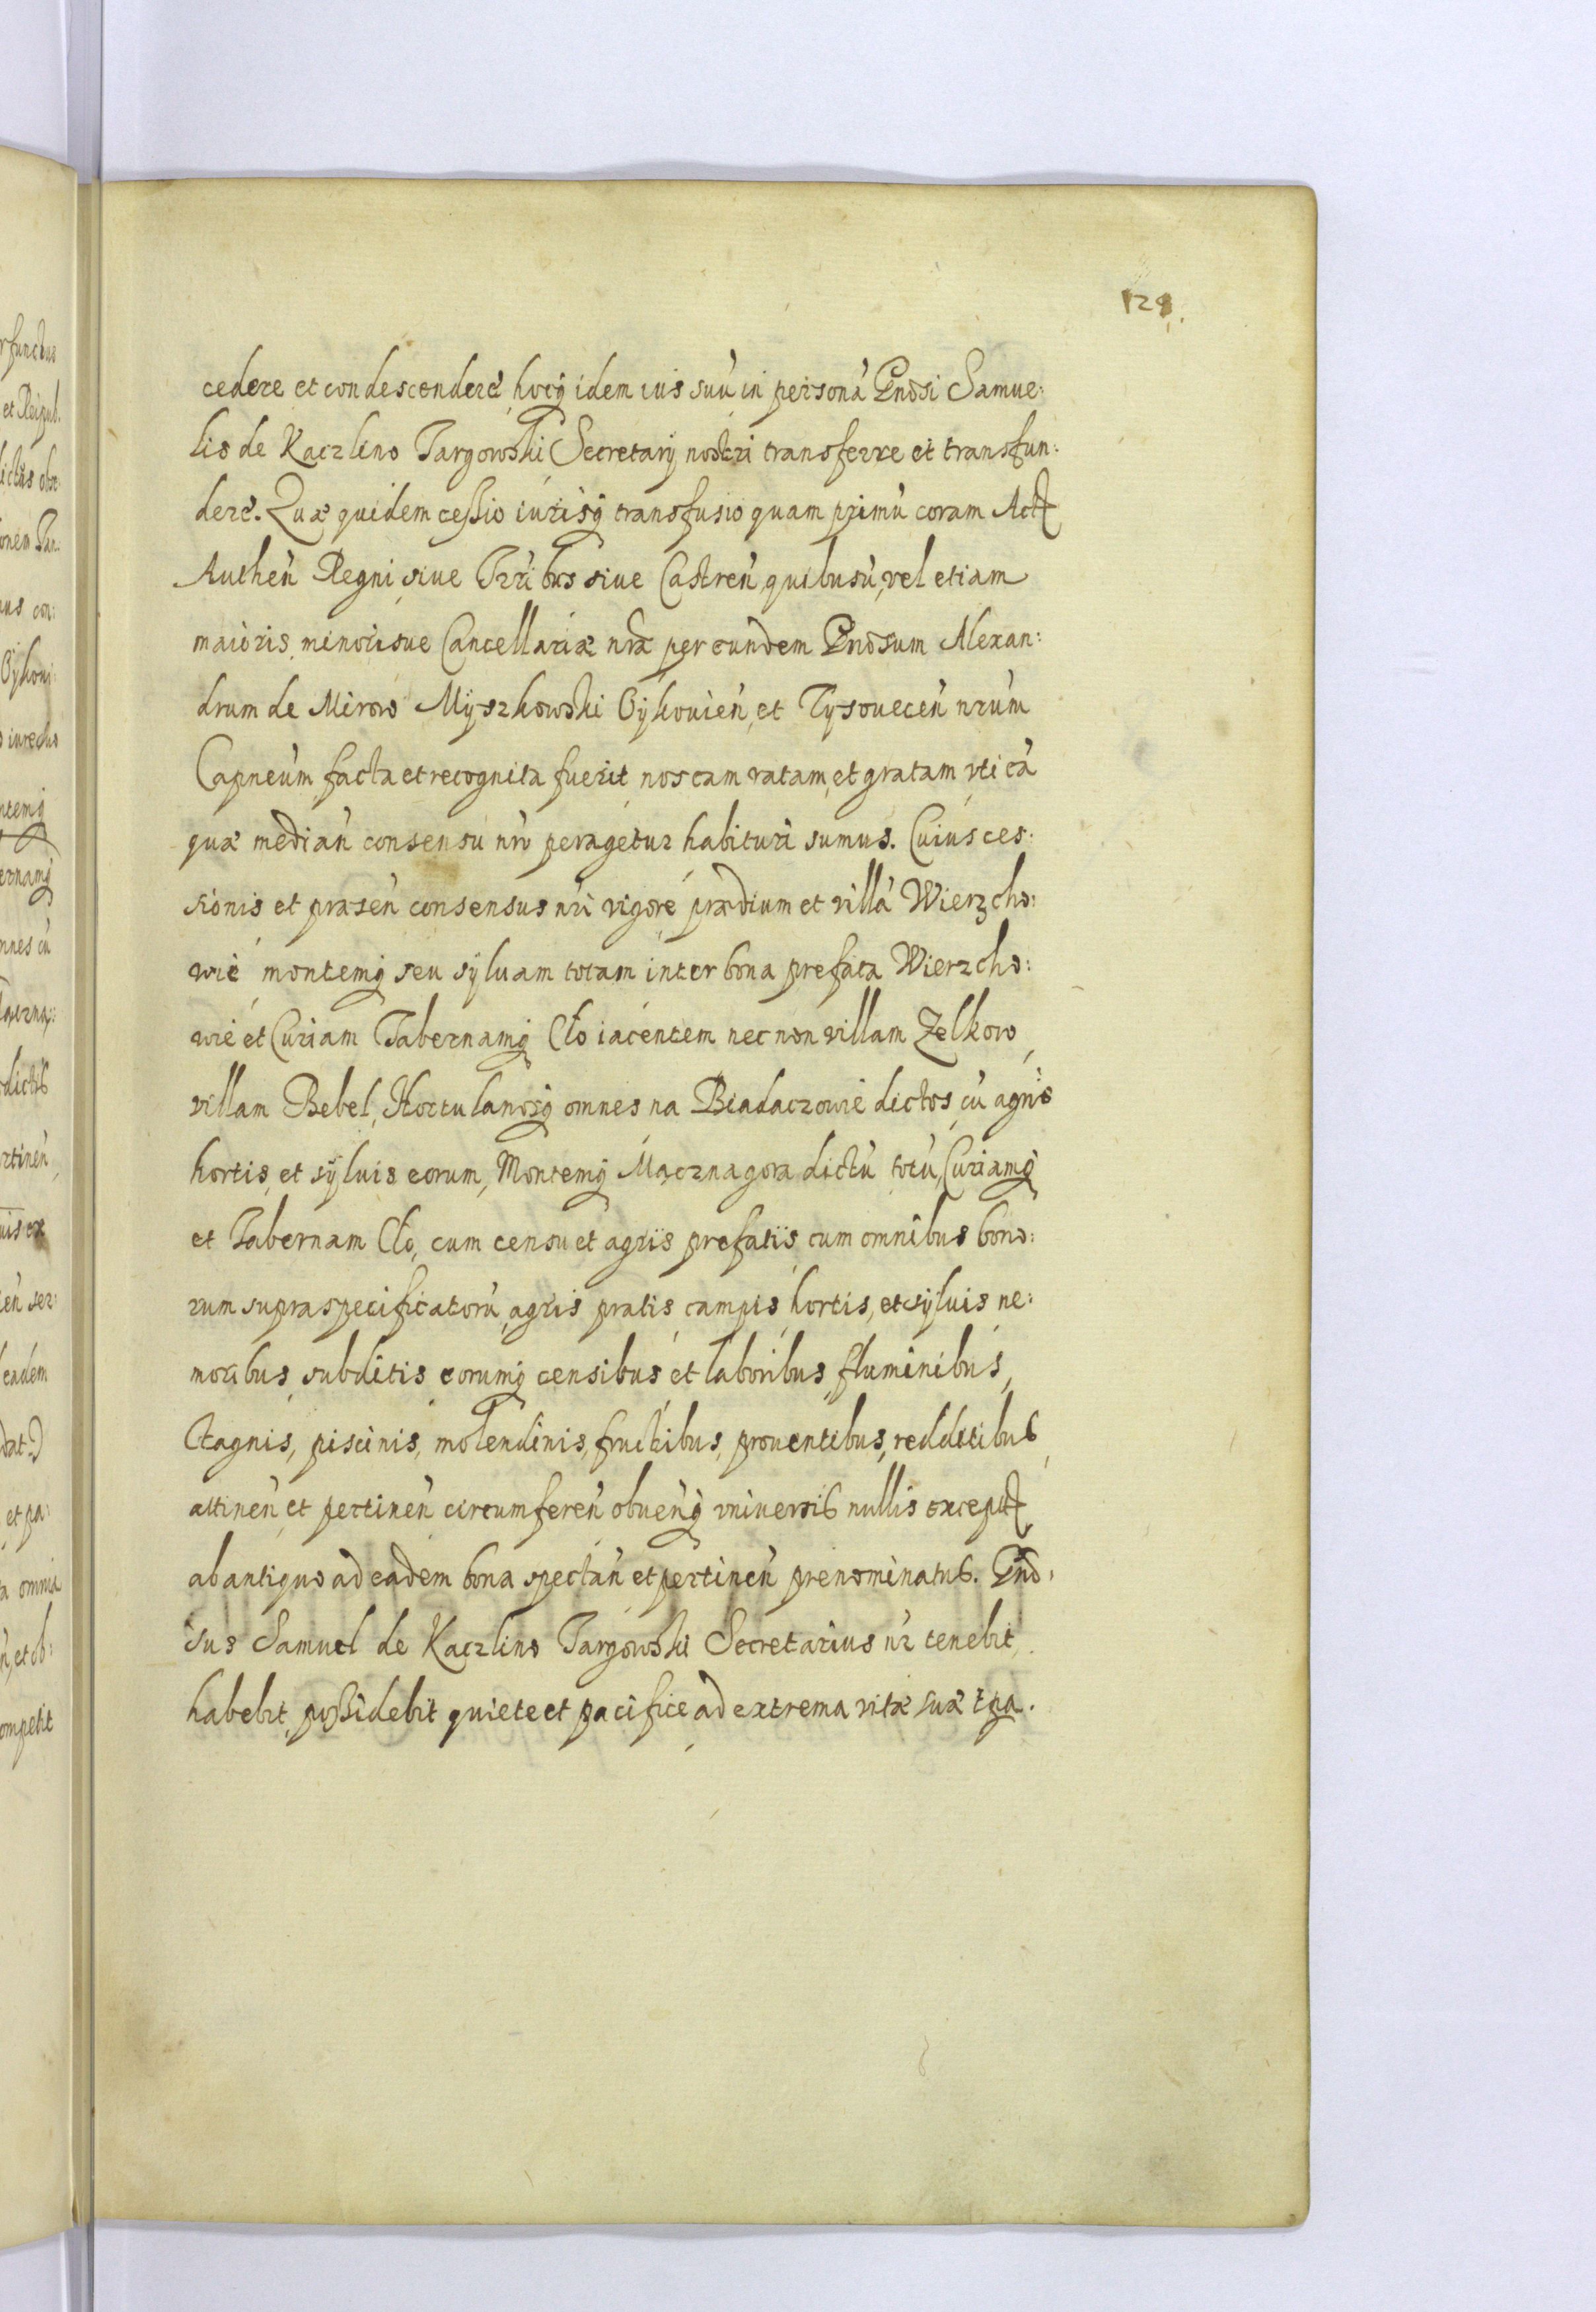 128.
cedere et condescendere, hocq idem ius suũ in personã Gnosi Samue:
lis de Kaczlino Targowski Secretarij nostri transferre et transfun:
dere. Quæ quidem cessio iurisq transfusio quam primũ coram Act
Authen̄ Regni, siue Trribus siue Castren̄ quibusũ, vel etiam
maioris, minorisue Cancellariæ nræ per eundem Gnosum Alexan:
drum de Mirow Myszkowski Oÿkouien̄, et Tysouecen̄ nrum
Capneum facta et recognita fuerit, nos eam ratam, et gratam, vti eã
quæ median̄ consensu nro peragetur habituri sumus. Cuius ces:
sionis et præsen̄ consensus nri vigore prædium et villã Wierzcho:
wie montemq seu syluam totam inter bona prefata Wierzcho:
wie et Curiam Tabernamq Cło iacentem nec non villam Zelkow,
villam Bebel, Hortulanosq omnes na Biadaczowie dictos, cũ agris
hortis, et syluis eorum, Montemq Mącznagora dictũ totũ, Curiamq
et Tabernam Cło, cum censu et agris prefatis, cum omnibus bono:
rum supraspecificatorũ, agris pratis campis, hortis, et syluis, ne:
moribus, subditis, eorumq censibus et laboribus, fluminibus,
Stagnis, piscinis, molendinis, fructibus, prouentibus, redditibus,
attinen̄ et pertinen̄ circumferen̄ obuen̄q vniuersis nullis except
ab antiquo ad eadem bona spectan̄ et pertinen̄ prenominatus. Gno:
sus Samuel de Kaczlino Targowski Secretarius nr tenebit,
habebit, possidebit quiete et pacifice ad extrema vitæ suæ tpa.